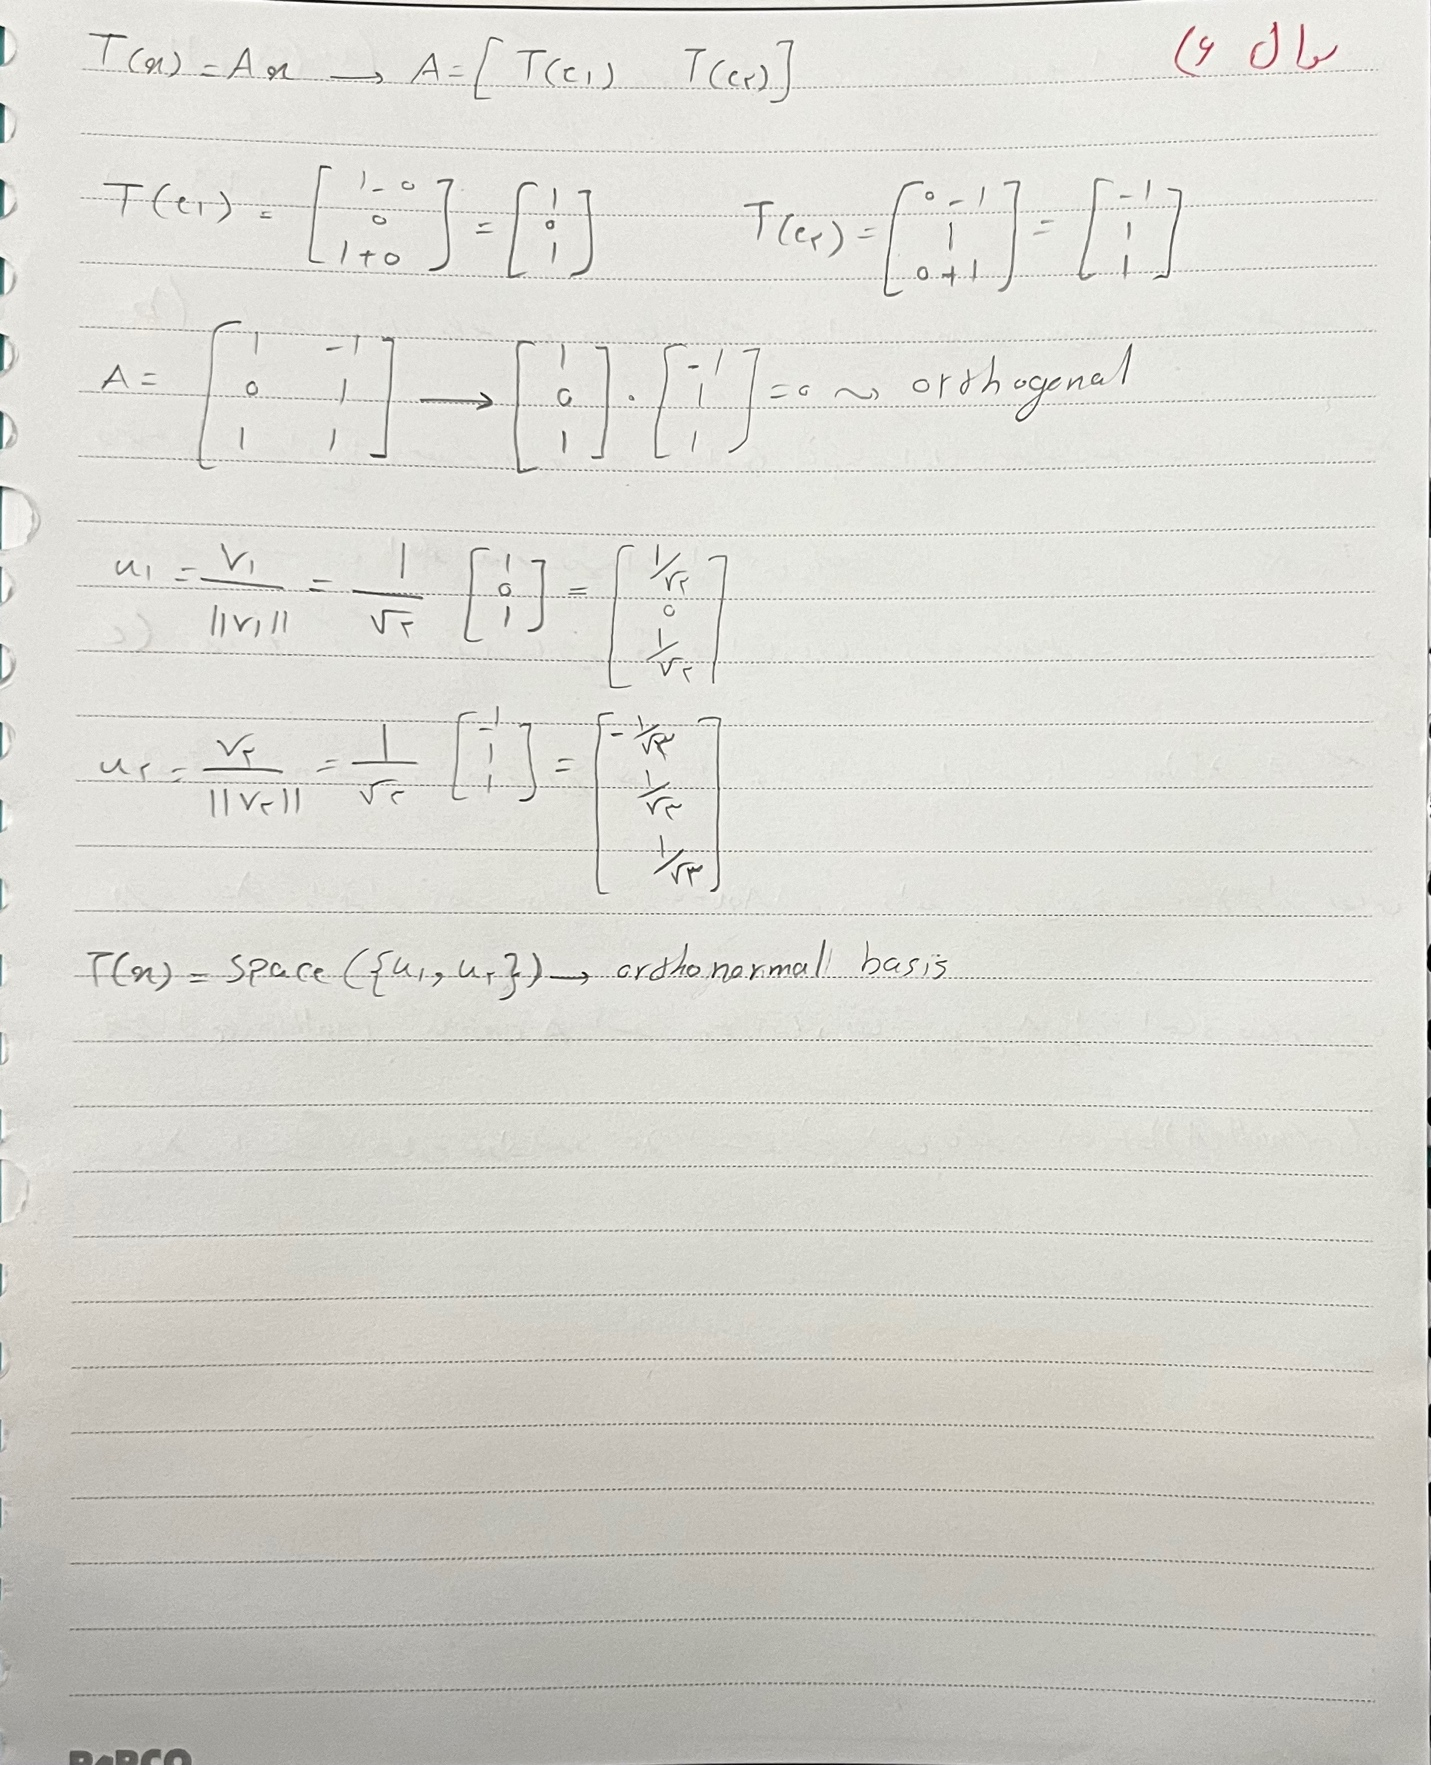 سوال ۶)
T(x) = Ax → A = [ T(e₁) T(e₂) ]
T(e₁) = [ 1-0 ; 0 ; 1+0 ] = [ 1 ; 0 ; 1 ] T(e₂) = [ 0-1 ; 1 ; 0+1 ] = [ -1 ; 1 ; 1 ]
A = [ 1 -1 ; 0 1 ; 1 1 ] → [ 1 ; 0 ; 1 ] . [ -1 ; 1 ; 1 ] = 0 ~> orthogonal
u₁ = V₁ / ||V₁|| = 1/√۲ [ 1 ; 0 ; 1 ] = [ 1/√۲ ; 0 ; 1/√۲ ]
u₂ = V₂ / ||V₂|| = 1/√۳ [ -1 ; 1 ; 1 ] = [ -1/√۳ ; 1/√۳ ; 1/√۳ ]
T(x) = Space ({u₁, u₂}) → orthonormal basis